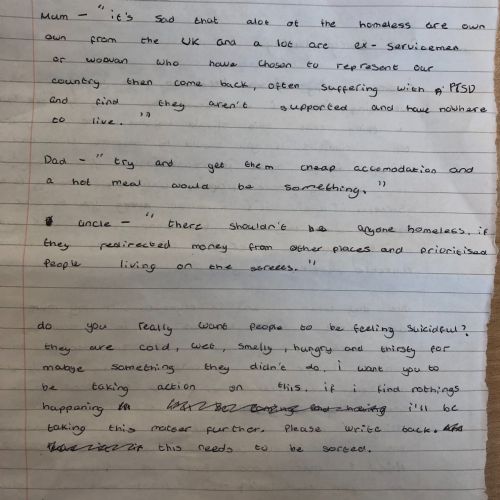 Mum - "it's sad that alot of the homeless are own
own from the UK and a lot are ex-servicemen
or wooman who have chosen to represent our
country then come back, often suffering with PTSD
and find they aren't supported and have nowhere
to live."
Dad - "try and get them cheap accomodation and
a hot meal would be something."
uncle - "there shouldn't be anyone homeless. if
they redirected money from other places and prioritised
people living on the streets."
do you really want people to be feeling suicidful?
they are cold, wet, smelly, hungry and thirsty for
maybe something they didn't do. i want you to
be taking action on this, if i find nothings
happaning i'll be
taking this matter further. Please write back.
this needs to be sorted.